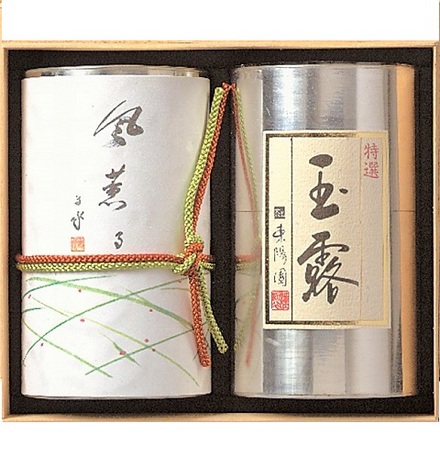 風薫る
特選
玉露
東陽園